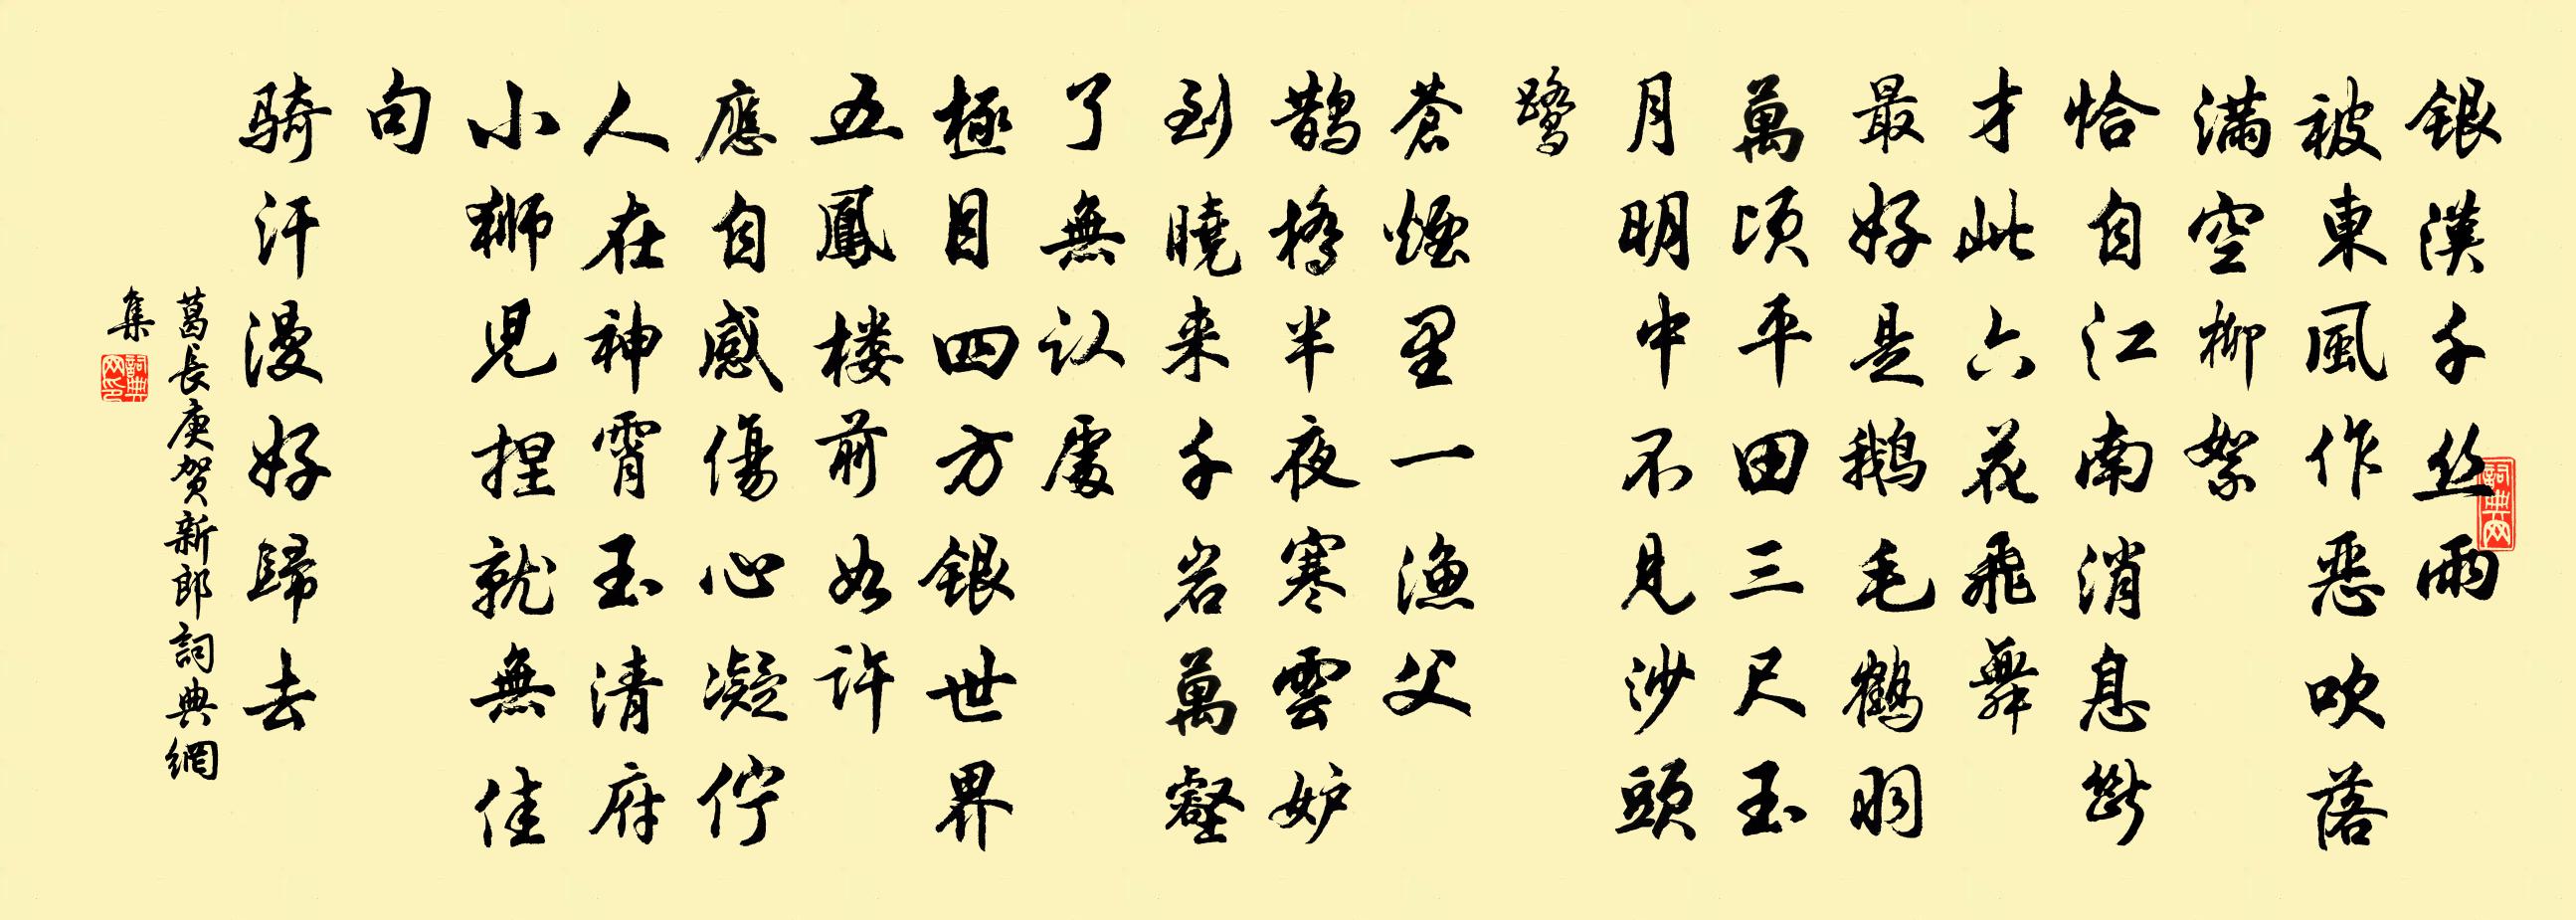 銀漢千丝雨
被東風作恶吹落
满空柳絮
恰自江南消息斷
才此六花飛舞
最好是鹅毛鶴羽
萬顷平田三尺玉
月明中不見沙頭
鹭
蒼煙里一漁父
鹊橋半夜寒雲妒
到曉来千岩萬壑
了無认處
極目四方銀世界
五鳳楼前如許
應自感傷心凝佇
人在神霄玉清府
小狮児捏就無佳
句
骑汗漫好歸去
葛長庚贺新郎詞典網
集
詞典网
詞典网印